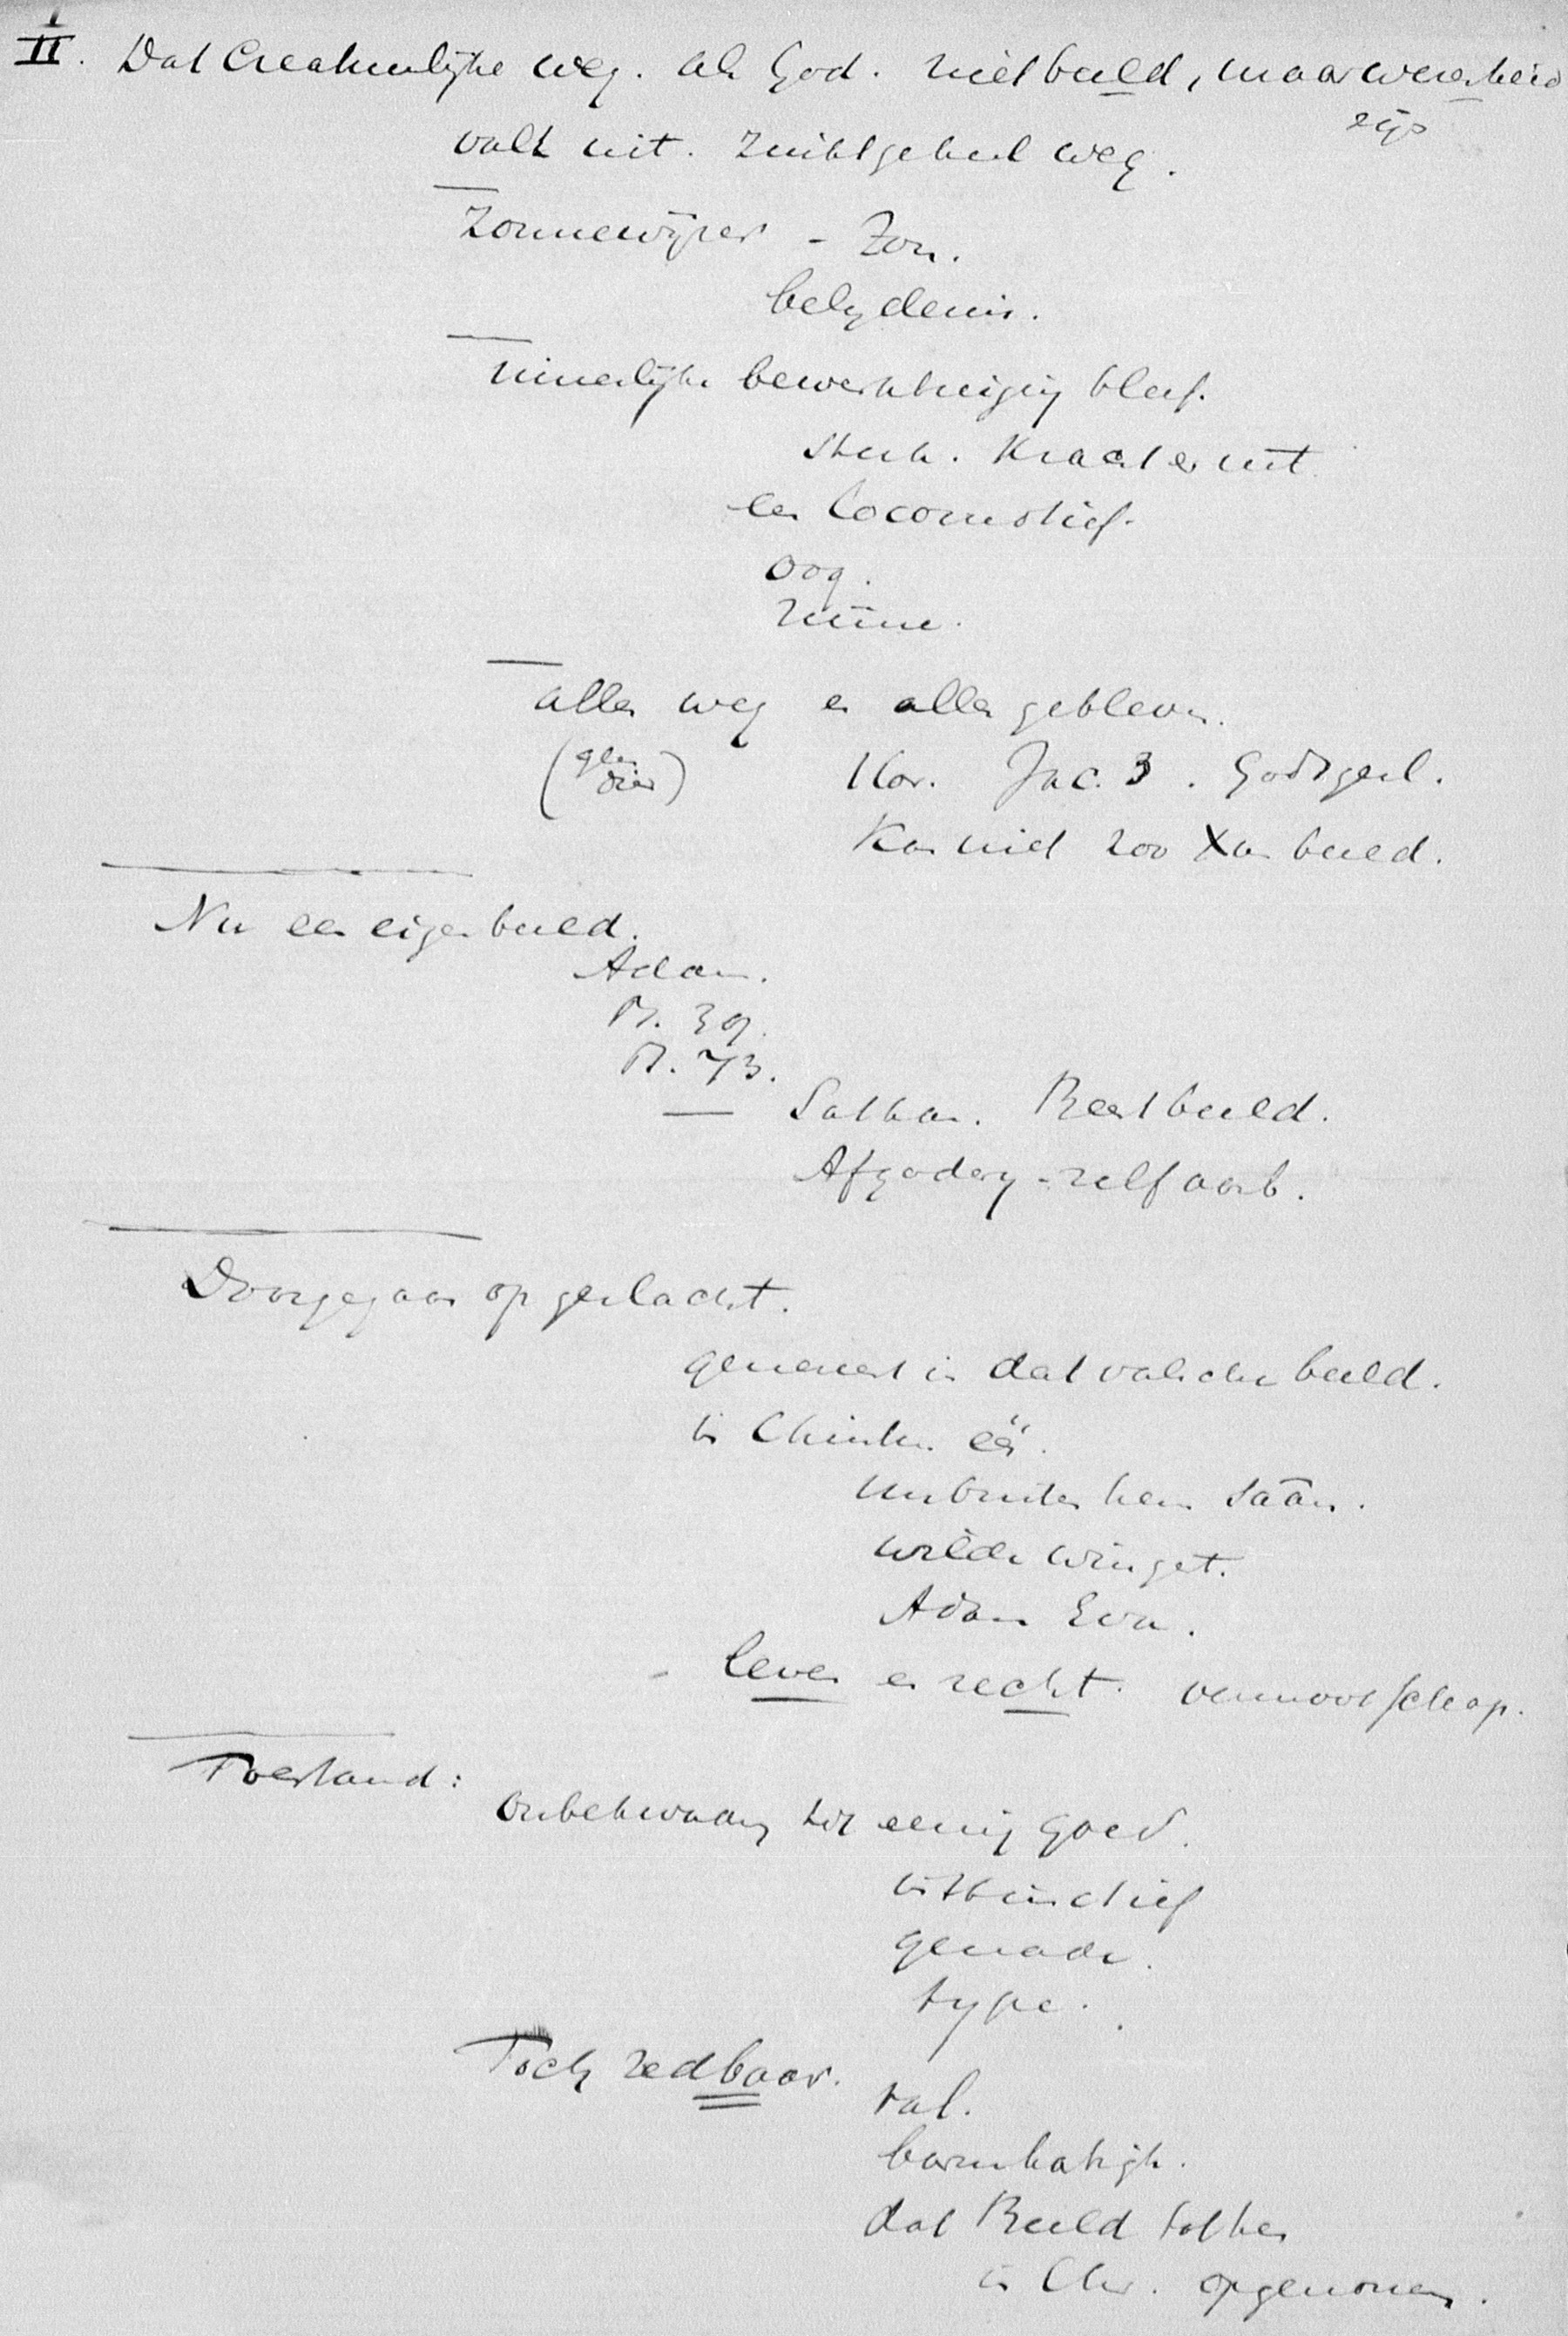 II. Dat Creatuurlijke weg. als God. niet beeld, maar wezenheid
zijn
valt uit. zinkt geheel weg.
Zonnewijzer - Zon.
belydenis.
innerlijke bewerktuiging bleef.
Kracht er uit
een locomotief.
oog.
ruïne.
alles weg en alles gebleven.
(geen dier)
1 Cor. Jac. 3. Godsgesl.
Kan niet zoo X an beeld.
Nu een eigen beeld.
Adam.
Ps. 39.
Ps. 73.
Sathan. Beestbeeld.
Afgodery - zelfaanb.
Doorgegaan op geslacht.
genereert in dat valsche beeld.
in Christus één.
nu buiten hem saân.
wilde wingt.
Adam Eva.
- leven en recht. vennootschap.
Toestand:
Onbekwaam tot eenig goed.
instinctief
genade.
type.
Toch redbaar.
val.
barmhartigh.
dat Beeld
in Chr. opgenomen.